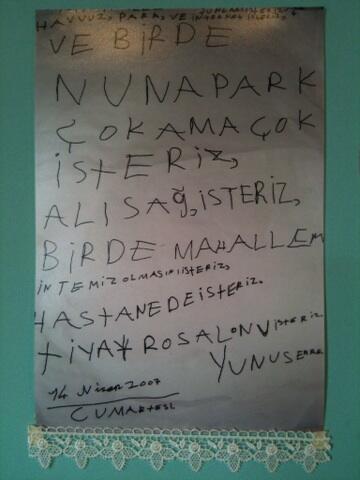 HAVVUZ, PARK, VE İNTERNET İSTERİZ,
VE BİRDE
NUNAPARK
ÇOK AMA ÇOK
İSTERİZ,
ALISAĞ, İSTERİZ,
BİRDE MAHALLEM
İN TEMİZ OLMASINI İSTERİZ,
HASTANEDE İSTERİZ.
TİYATROSALONU İSTERİZ.
YUNUS EMRE
14 Nisan 2007
CUMARTESİ